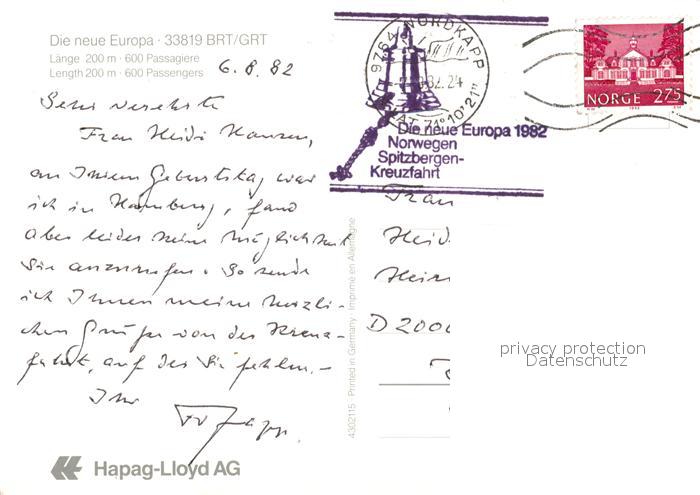 Die neue Europa · 33819 BRT/GRT
Länge 200 m · 600 Passagiere
Length 200 m · 600 Passengers
6.8.82
Sehr verehrte
Frau Heidi Hansen,
an Ihrem Geburtstag war
ich in Hamburg, fand
aber leider keine Möglichkeit
Sie anzurufen. So sende
ich Ihnen meine herzli-
chen Grüße von der Kreuz-
fahrt, auf der Sie fehlen.-
Ihr
Hapag-Lloyd AG
4302115 · Printed in Germany · Imprimé en Allemagne
9764 NORDKAPP
82.24
LAT. 71°10'21"
Die neue Europa 1982
Norwegen
Spitzbergen-
Kreuzfahrt
NORGE 275
Frau
Heidi
Hein
D 2000
privacy protection
Datenschutz